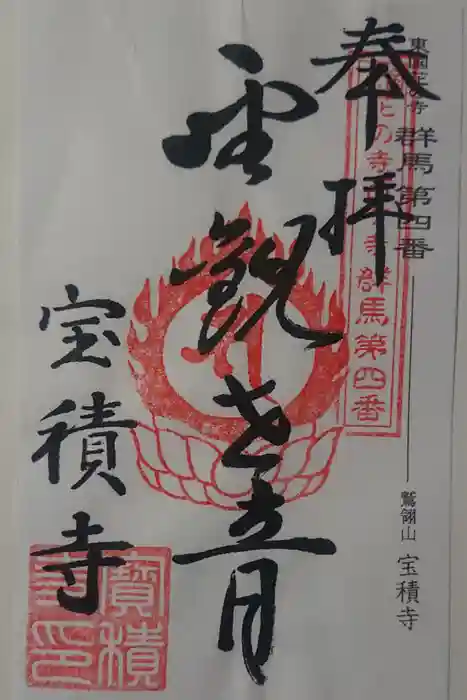 東国花の寺 群馬第四番
鷲翎山 宝積寺
奉拝
聖観世音
宝積寺
群馬第四番
寳積
寺印